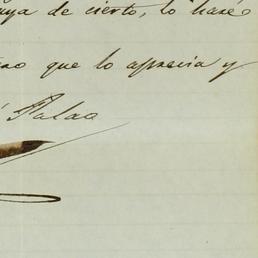 haya de cierto, lo haré
que lo aprecia y
Palao